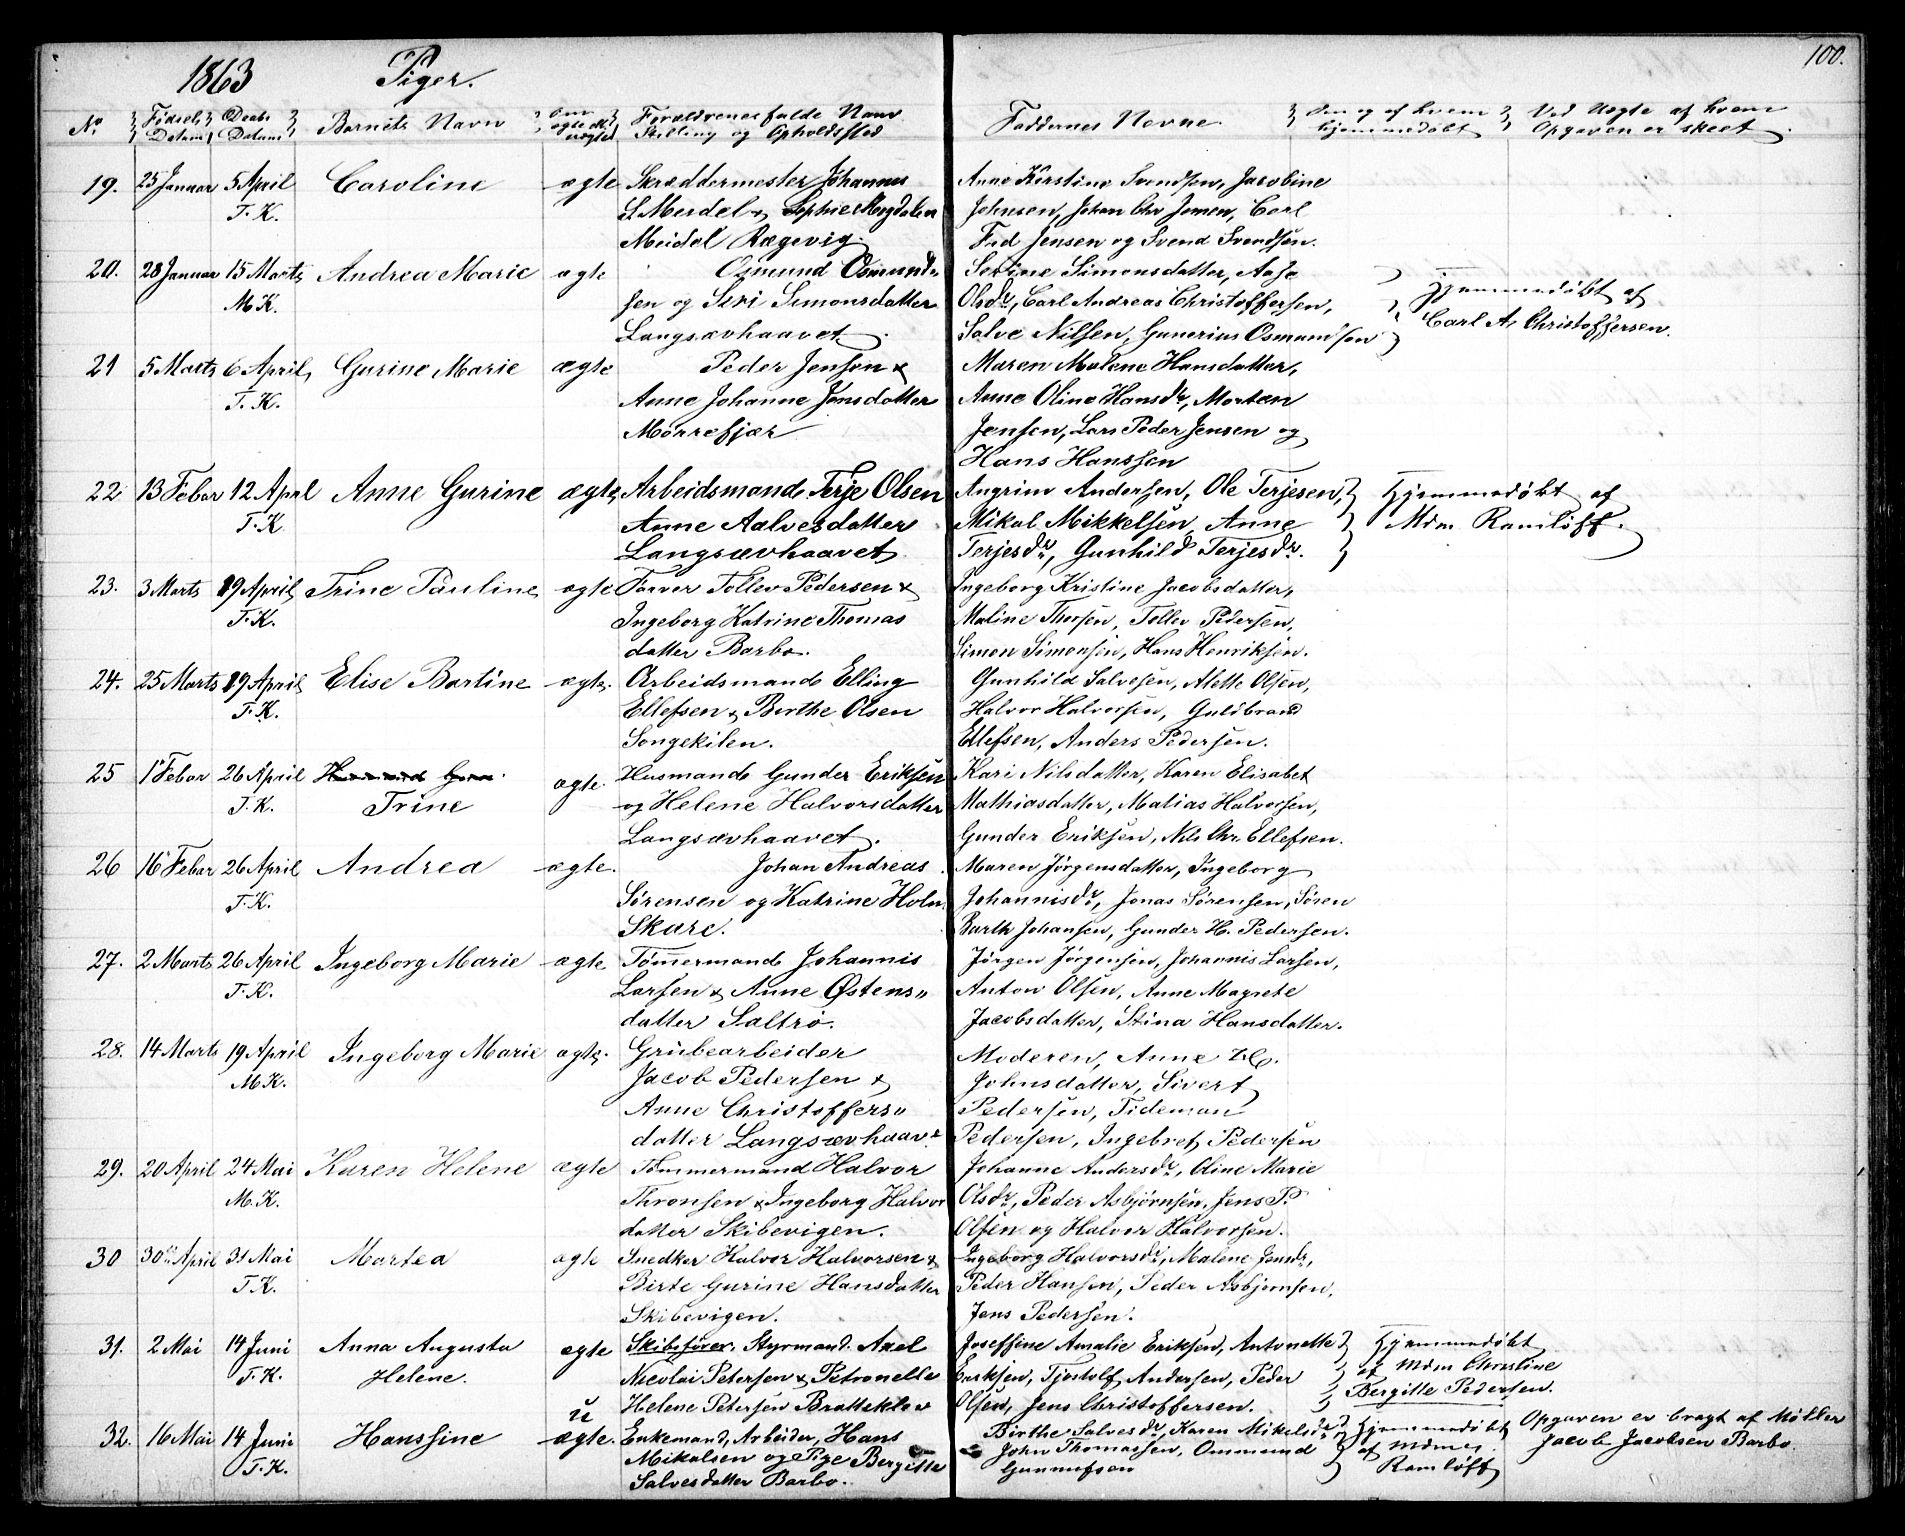 100.
1863 Piger.
No Fødsels Datum Daabs Datum Barnets Navn Om ægte ell. uægte Forældrenes fulde Navn Stilling og Opholdssted Faddernes Navne Om og af hvem hjemmedøbt Ved Uægte af hvem Opgaven er skeet
19. 25 Januar 5 April Caroline ægte Skræddermester Johannes Anne Kirstine Svendsen, Jacobine
T. K. S. Meidel & Sophie Magdalen Johnsen, Johan Chr Jensen, Carl
Meidel Rægevig. Frd Jensen og Svend Svendsen.
20. 28 Januar 15 Marts Andrea Marie ægte Osmund Osmund= Serine Simonsdatter, Aase
M K. sen og Siri Simonsdatter Olsdr, Carl Andreas Christoffersen, Hjemmedøbt af
Langsævhaavet. Salve Nilsen, Gunerius Osmundsen Carl A. Christoffersen.
21 5 Marts 6 April, Gurine Marie ægte Peder Jensen & Maren Malene Hansdatter,
T. K. Anne Johanne Jensdatter Anne Oline Hansdr, Morten
Mørrefjær Jensen, Lars Peder Jensen og
Hans Hanssen
22 13 Febar 12 April Anne Gurine ægte Arbeidsmand Terje Olsen Angrim Andersen, Ole Terjesen, Hjemmedøbt af
T. K Anne Aalvesdatter Mikal Mikkelsen, Anne Mdm Ramløff.
Langsævhaavet Terjesdr, Gunhild Terjesdr.
23. 3 Marts 19 April Trine Pauline ægte Farver Tollev Pedersen & Ingeborg Kristine Jacobsdatter,
T. K. Ingeborg Katrine Thomas Maline Thorsen, Tollev Pedersen,
datter Barbo. Simon Simonsen, Hans Henriksen.
24. 25 Marts 19 April Elise Bertine ægte. Arbeidsmand Elling Gunhild Salvesen, Alette Olsen,
T. K. Ellefsen & Berthe Olsen Halvor Halvorsen, Guldbrand
Songekilen. Ellefsen, Anders Pedersen.
25 1 Febar 26 April ægte. Husmand Gunder Eriksen Kari Nilsdatter, Karen Elisabet
T. K. Trine og Helene Halvorsdatter Mathiasdatter, Matias Halvorsen,
Langsævhaavet. Gunder Eriksen, Nils Chr. Ellefsen.
26 16 Febar 26 April Andrea ægte. Johan Andreas Maren Jørgensdatter, Ingeborg
T. K. Sørensen og Katrine Holm Johannisdr, Jonas Sørensen, Søren
Skare. Barth Johansen, Gunder H. Pedersen.
27. 2 Marts 26 April Ingeborg Marie ægte Tømmermand Johannis Jørgen Jørgensen, Johannis Larsen,
T. K. Larsen & Anne Østens= Anton Olsen, Anne Magrete
datter Saltrø. Jacobsdatter, Stina Hansdatter.
28. 14 Marts 19 April Ingeborg Marie ægte. Grubearbeider Moderen, Anne
M. K. Jacob Pedersen & Johnsdatter, Sivert
Anne Christoffers= Pedersen, Tideman
datter Langsævhaavt Pedersen, Ingebret Pedersen
29. 20 April 24 Mai Karen Helene ægte Tømmermand Halvor Johanne Andersdr, Oline Marie
M. K. Thronsen & Ingeborg Halvor Olsdr, Peder Asbjørnsen, Jens P.
datter Skibevigen. Olsen og Halvor Halvorsen.
30 30te April 31 Mai Martea ægte Snedker Halvor Halvorsen & Ingeborg Halvorsdr, Malene Jensdr,
T. K. Birte Gurine Hansdatter Peder Hansen, Peder Asbjørnsen,
Skibevigen. Jens Pedersen.
31. 2 Mai 14 Juni Anna Augusta ægte Skibsfører, Styrmand. Axel Joseffine Amalie Eriksen, Antonette Hjemmedøbt
T. K. Helene. Nicolai Petersen & Petronelle Eriksen, Tjostolf Andersen, Peder af Mdm Christine
Helene Petersen Bratteklev Olsen, Jens Christoffersen. Bergitte Pedersen.
32. 16 Mai 14 Juni Hanssine u ægte. Enkemand, Arbeider, Hans Birthe Salvesdr, Karen Mikelsdr Hjemmedøbt Opgaven er bragt af Møller
T. K. Mikalsen og Pige Bergitte John Thomassen, Ommund af Mdme Jacob Jacobsen Barbo.
Salvesdatter Barbo. Gunnufsen Ramløff